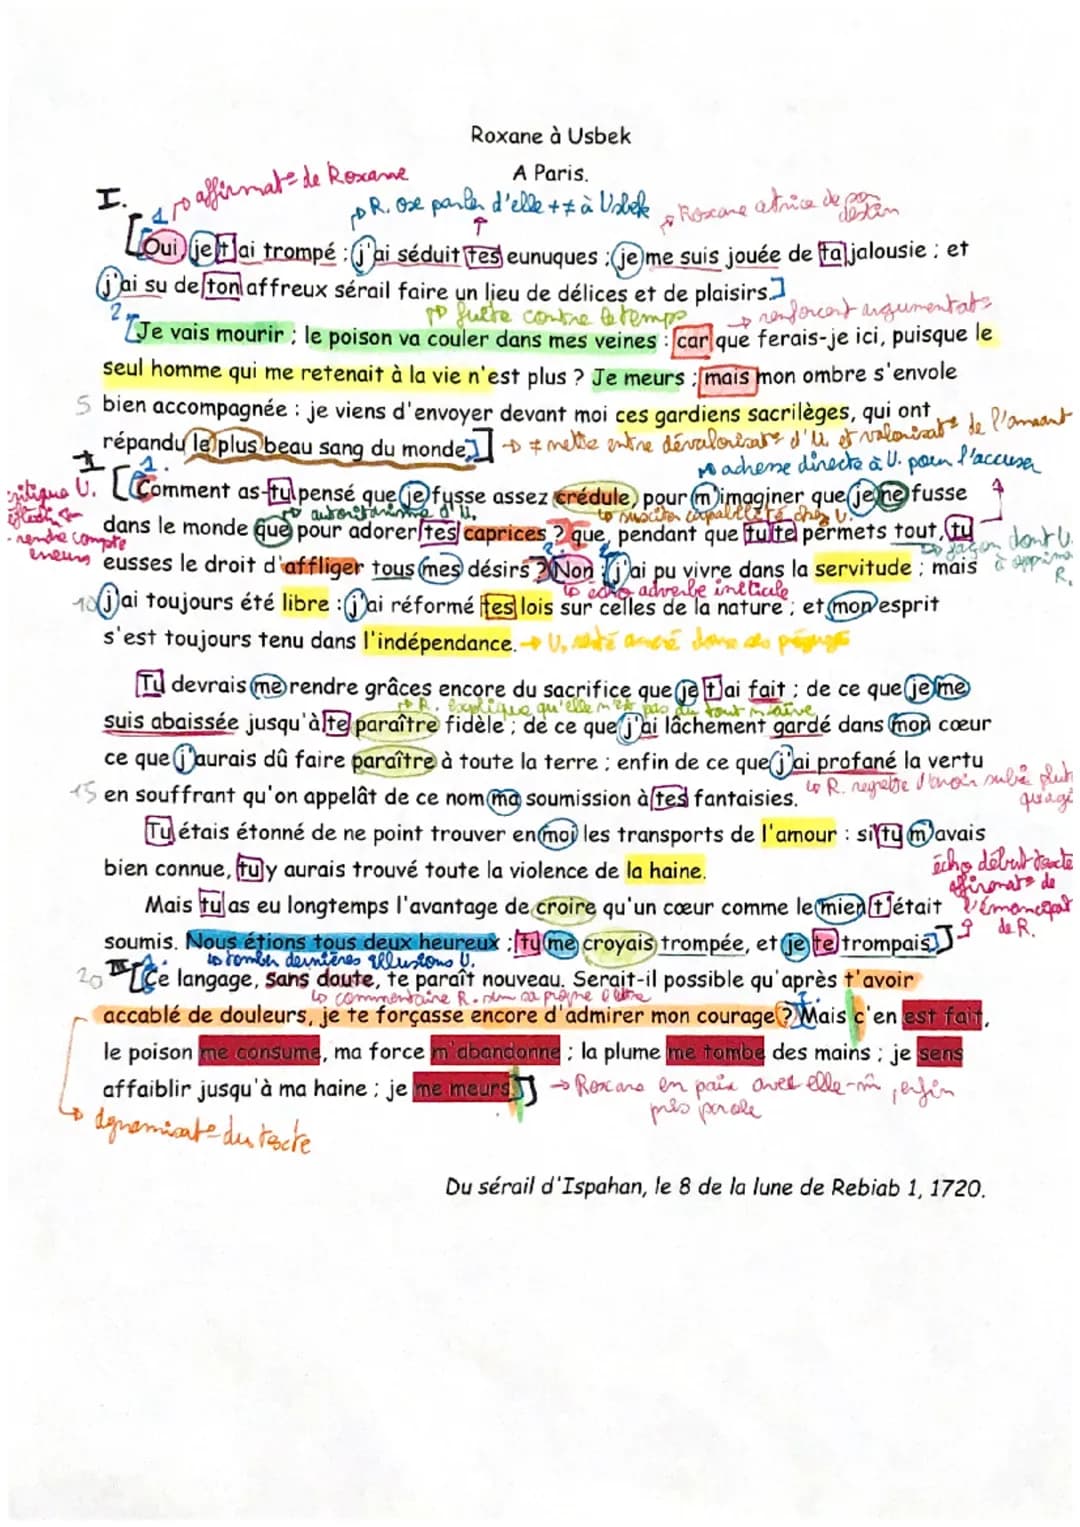 Roxane à Usbek
A Paris.
I.
1 affirmat° de Roxane
R. ose parler d'elle ++ ≠ à Usbek
Roxane actrice de son destin
[Oui je t'ai trompé : j'ai séduit tes eunuques ; je me suis jouée de ta jalousie ; et
j'ai su de ton affreux sérail faire un lieu de délices et de plaisirs.]
fuite contre le temps
renforcent argumentat°
2 [Je vais mourir ; le poison va couler dans mes veines : car que ferais-je ici, puisque le
seul homme qui me retenait à la vie n'est plus ? Je meurs ; mais mon ombre s'envole
5 bien accompagnée : je viens d'envoyer devant moi ces gardiens sacrilèges, qui ont
répandu le plus beau sang du monde.] → ≠ mettre entre dévalorisat° d'U. et valorisat° de l'amant
adresse directe à U. pour l'accuser
II 1. [Comment as-tu pensé que je fusse assez crédule, pour m'imaginer que je ne fusse
critique U.
autoritarisme d'U.
susciter capabilité chez U.
dans le monde que pour adorer tes caprices ? que, pendant que tu te permets tout, tu
rendre compte erreurs
façon dont U. a opprimé R.
eusses le droit d'affliger tous mes désirs ? Non : j'ai pu vivre dans la servitude ; mais
écho adverbe initiale
10 j'ai toujours été libre : j'ai réformé tes lois sur celles de la nature ; et mon esprit
s'est toujours tenu dans l'indépendance. → U. resté ancré dans ses préjugés
Tu devrais me rendre grâces encore du sacrifice que je t'ai fait ; de ce que je me
R. explique qu'elle n'est pas du tout naïve
suis abaissée jusqu'à te paraître fidèle ; de ce que j'ai lâchement gardé dans mon cœur
ce que j'aurais dû faire paraître à toute la terre ; enfin de ce que j'ai profané la vertu
15 en souffrant qu'on appelât de ce nom ma soumission à tes fantaisies.
R. regrette d'avoir subi plut
qu'agi
Tu étais étonné de ne point trouver en moi les transports de l'amour : si tu m'avais
bien connue, tu y aurais trouvé toute la violence de la haine.
écho début texte
affirmat° de
l'émancipat°
de R.
Mais tu as eu longtemps l'avantage de croire qu'un cœur comme le mien t'était
soumis. Nous étions tous deux heureux ; tu me croyais trompée, et je te trompais.]
tomber dernières illusions U.
20 III 1. [Ce langage, sans doute, te paraît nouveau. Serait-il possible qu'après t'avoir
commentaire R. sur sa propre lettre
accablé de douleurs, je te forçasse encore d'admirer mon courage ? Mais c'en est fait,
le poison me consume, ma force m'abandonne ; la plume me tombe des mains ; je sens
affaiblir jusqu'à ma haine ; je me meurs.] → Roxane en paix avec elle-m̂, enfin
près parole
dynamisat° du texte
Du sérail d'Ispahan, le 8 de la lune de Rebiab 1, 1720.